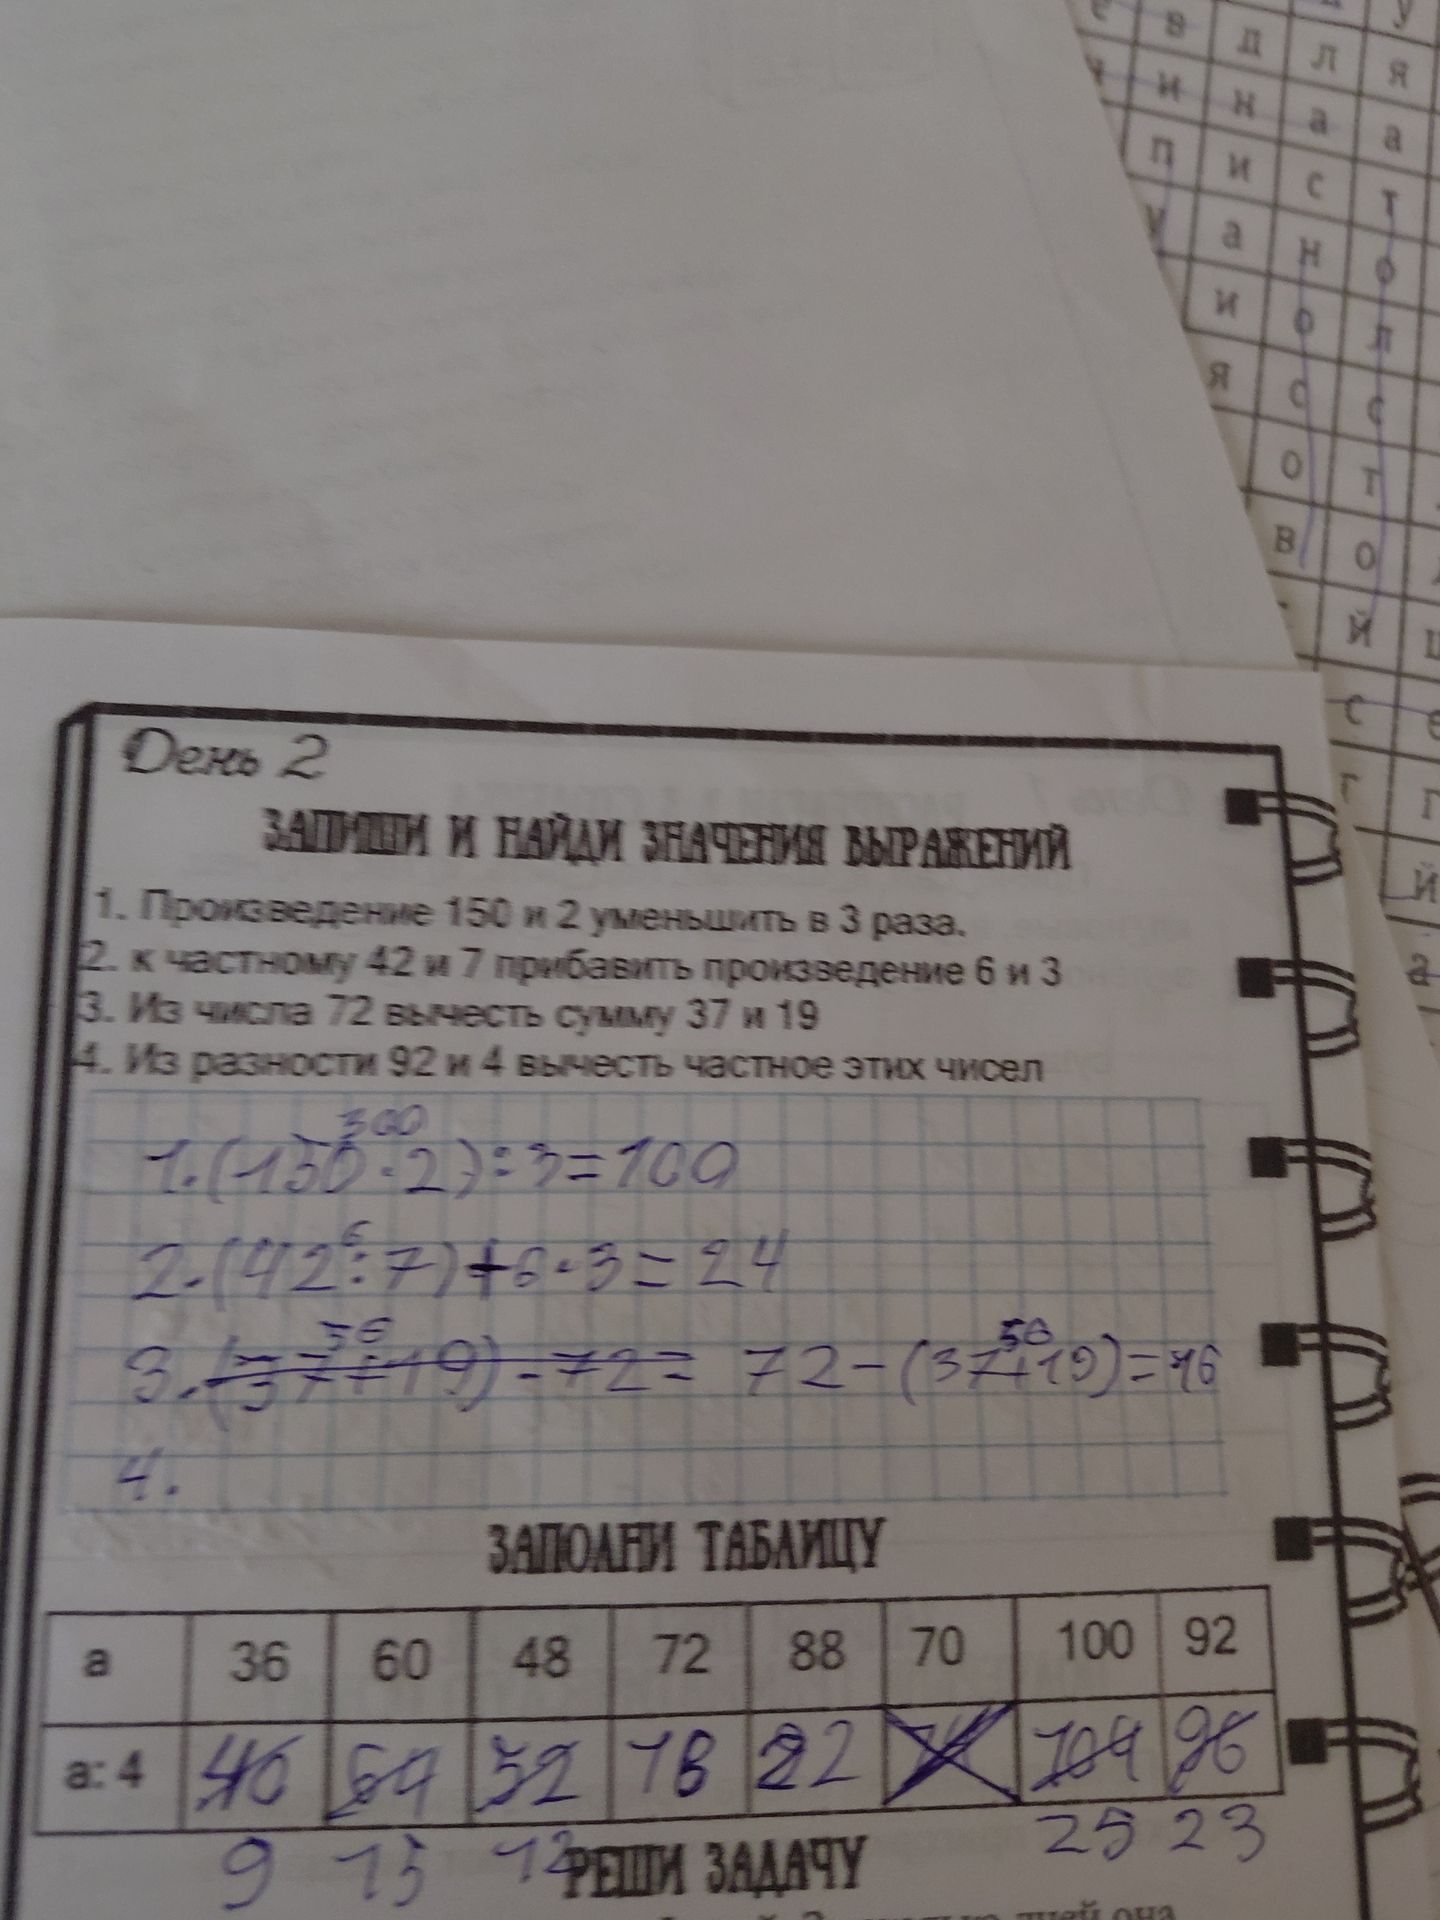 е в д л я
и н а а
п и с т
у а н о
и о л
я с с
о т
в о
й
с е
г
й
а
День 2
ЗАПИШИ И НАЙДИ ЗНАЧЕНИЯ ВЫРАЖЕНИЙ
1. Произведение 150 и 2 уменьшить в 3 раза.
2. к частному 42 и 7 прибавить произведение 6 и 3
3. Из числа 72 вычесть сумму 37 и 19
4. Из разности 92 и 4 вычесть частное этих чисел
300
1.(150·2):3=100
6
2.(42:7)+6·3=24
56 56
3.(37+19)-72= 72-(37+19)=16
4.
ЗАПОЛНИ ТАБЛИЦУ
а 36 60 48 72 88 70 100 92
а:4 40 64 52 18 22 74 104 96
9 15 12 25 23
РЕШИ ЗАДАЧУ
дней она